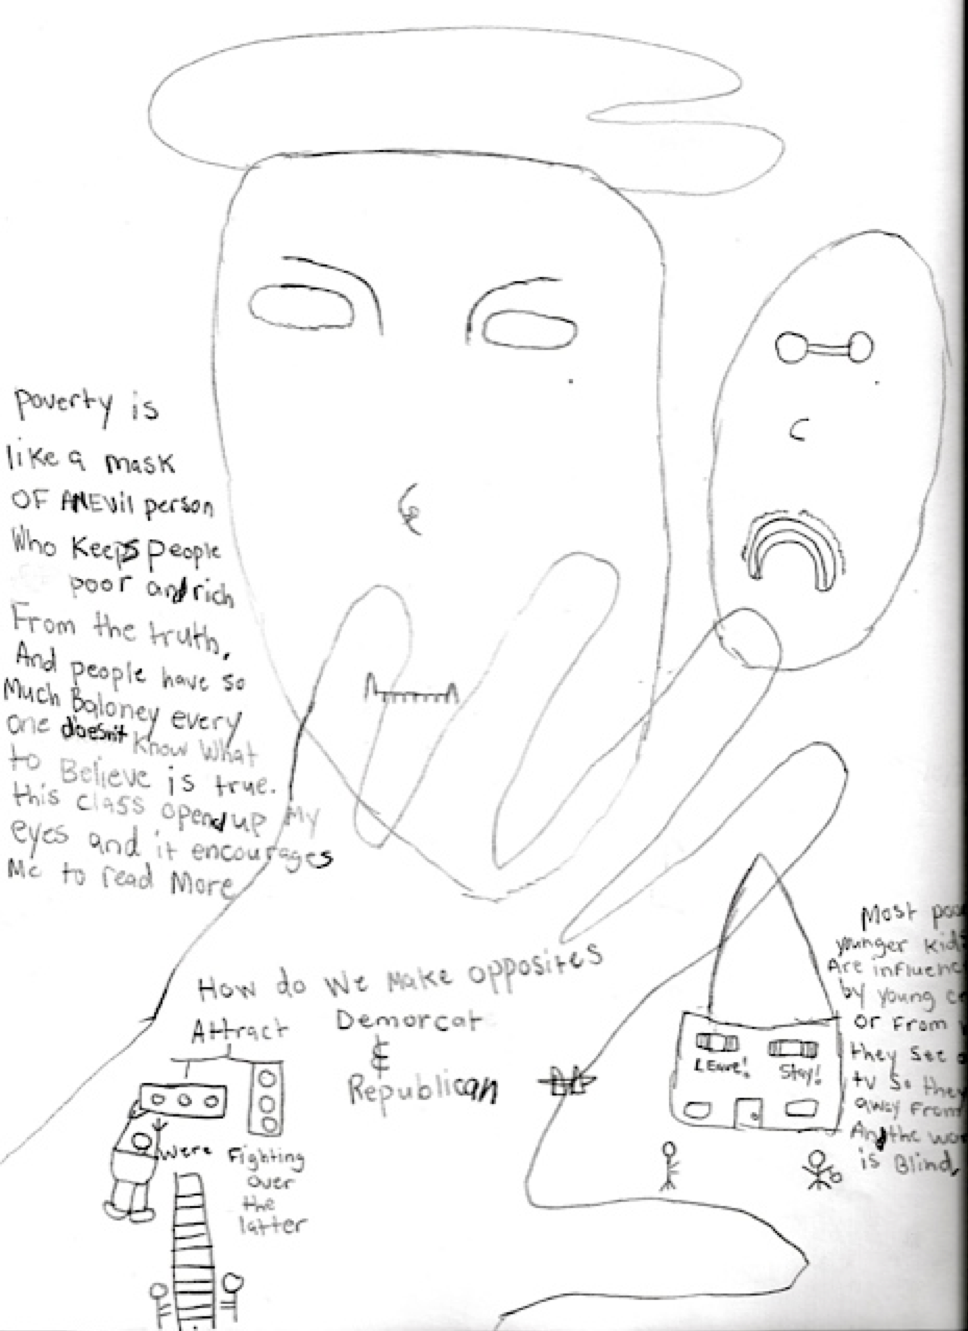 Poverty is
like a mask
OF AN Evil person
Who Keeps people
poor and rich
From the truth,
And people have so
Much Baloney every
one doesn't Know What
to Believe is true.
this class opend up My
eyes and it encourages
Me to read More
How do We Make opposites
Attract
Demorcat
&
Republican
Were Fighting
over
the
latter
LEave!
Stay!
Most
younger
Are
by young
or From
they See
tv So they
away From
And the
is Blind,